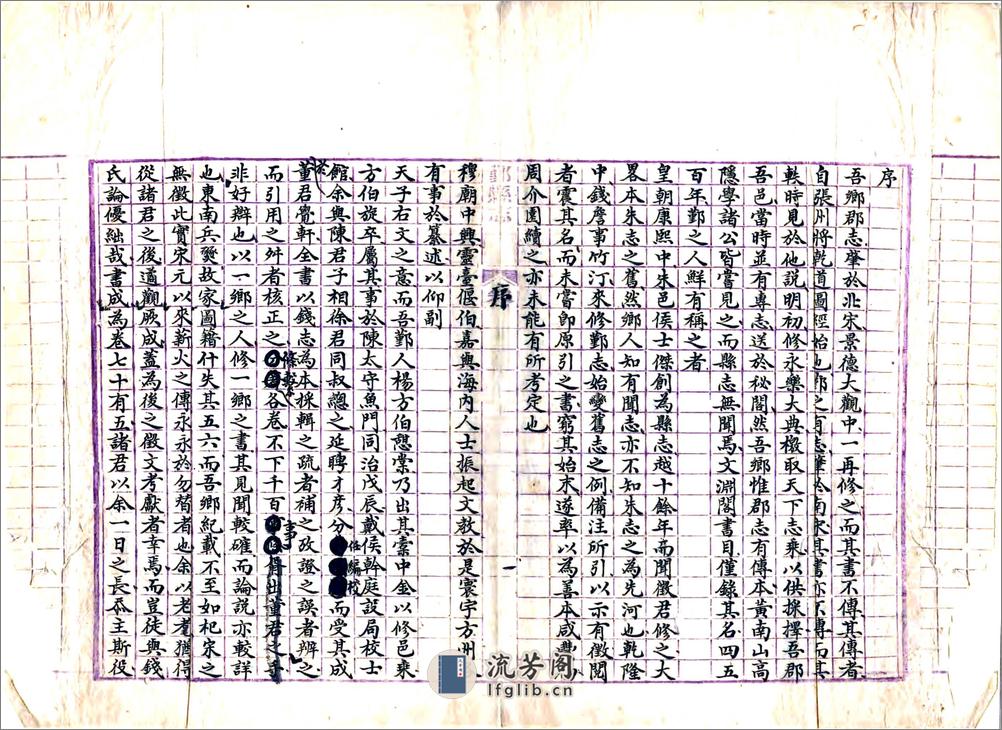 序
吾鄉郡志肇於北宋景德大觀中一再修之而其書不傳其傳者
自張州將乾道圖經始也鄞之有志肇於南宋其書亦不傳而其
軼時見於他說明初修永樂大典檄取天下志乘以供採擇吾郡
吾邑當時並有專志送於秘閣然吾鄉惟郡志有傳本黃南山高
隱學諸公皆嘗見之而縣志無聞焉文淵閣書目僅錄其名四五
百年鄞之人鮮有稱之者
皇朝康熙中朱邑侯士傑創為縣志越十餘年而聞徵君修之大
畧本朱志之舊然鄉人知有聞志亦不知朱志之為先河也乾隆
中錢詹事竹汀來修鄞志始變舊志之例備注所引以示有徵閱
者震其名而未嘗即原引之書窮其始末遂率以為善本咸豐
周介園續之亦未能有所考定也
鄞縣志
序
穆廟中興靈臺偃伯嘉與海內人士振起文教於是寰宇方州
有事於纂述以仰副
天子右文之意而吾鄞人楊方伯憩棠乃出其橐中金以修邑乘
方伯旋卒屬其事於陳太守魚門同治戊辰戴侯幹庭設局校士
館余與陳君子相徐君同叔總之延聘才彥分任編校而受其成
於董君覺軒全書以錢志為本採輯之疏者補之攷證之誤者辨之
而引用之舛者核正之條繫各卷不下千百事皆出董君之手
非好辯也以一鄉之人修一鄉之書其見聞較確而論說亦較詳
也東南兵燹故家圖籍什失其五六而吾鄉紀載不至如杞宋之
無徵此實宋元以來薪火之傳永永於勿替者也余以老耄獲得
從諸君之後遹觀厥成蓋為後之徵文考獻者幸焉而豈徒與錢
氏論優絀哉書成為卷七十有五諸君以余一日之長忝主斯役
流芳閣
lfglib.cn